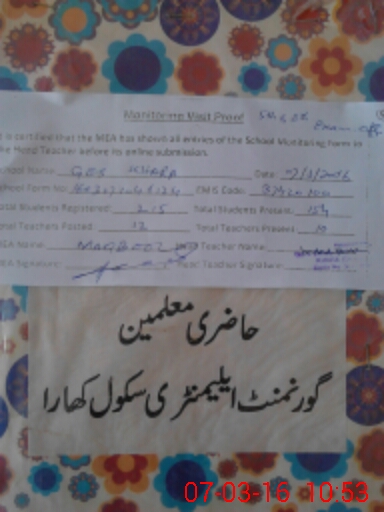 Monitoring Visit Proof
is certified that the MEA has shown all entries of the School Monitoring Form to
the Head Teacher before its online submission.
School Name GES KHARA Date: 7/3/2016
School Form No: EMIS Code:
Total Students Registered: 215 Total Students Present: 154
Total Teachers Posted: 12 Total Teachers Present: 10
MEA Name: MAQBOOL Teacher Name:
MEA Signature: Head Teacher Signature:
حاضری معلمین
گورنمنٹ ایلیمنٹری سکول کھارا
07-03-16 10:53